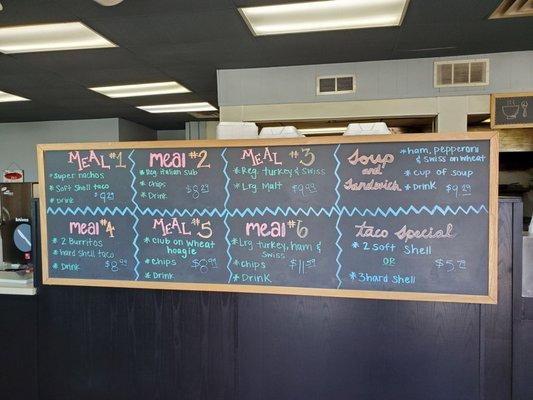 MEAL #1
* super nachos
* Soft Shell taco
* Drink
meal #2
* Reg. italian sub
* Chips
* Drink
MEAL #3
* Reg. Turkey & Swiss
* Lrg. Malt
* Drink
Soup and Sandwich
* ham, pepperoni & swiss on wheat
* cup of soup
* Drink
meal #4
* 2 Burritos
* hard shell taco
* Drink
MEAL #5
* club on wheat hoagie
* chips
* Drink
meal #6
* Lrg. Turkey, ham & swiss
* chips
* Drink
taco Special
* 2 soft Shell
OR
* 3 hard Shell